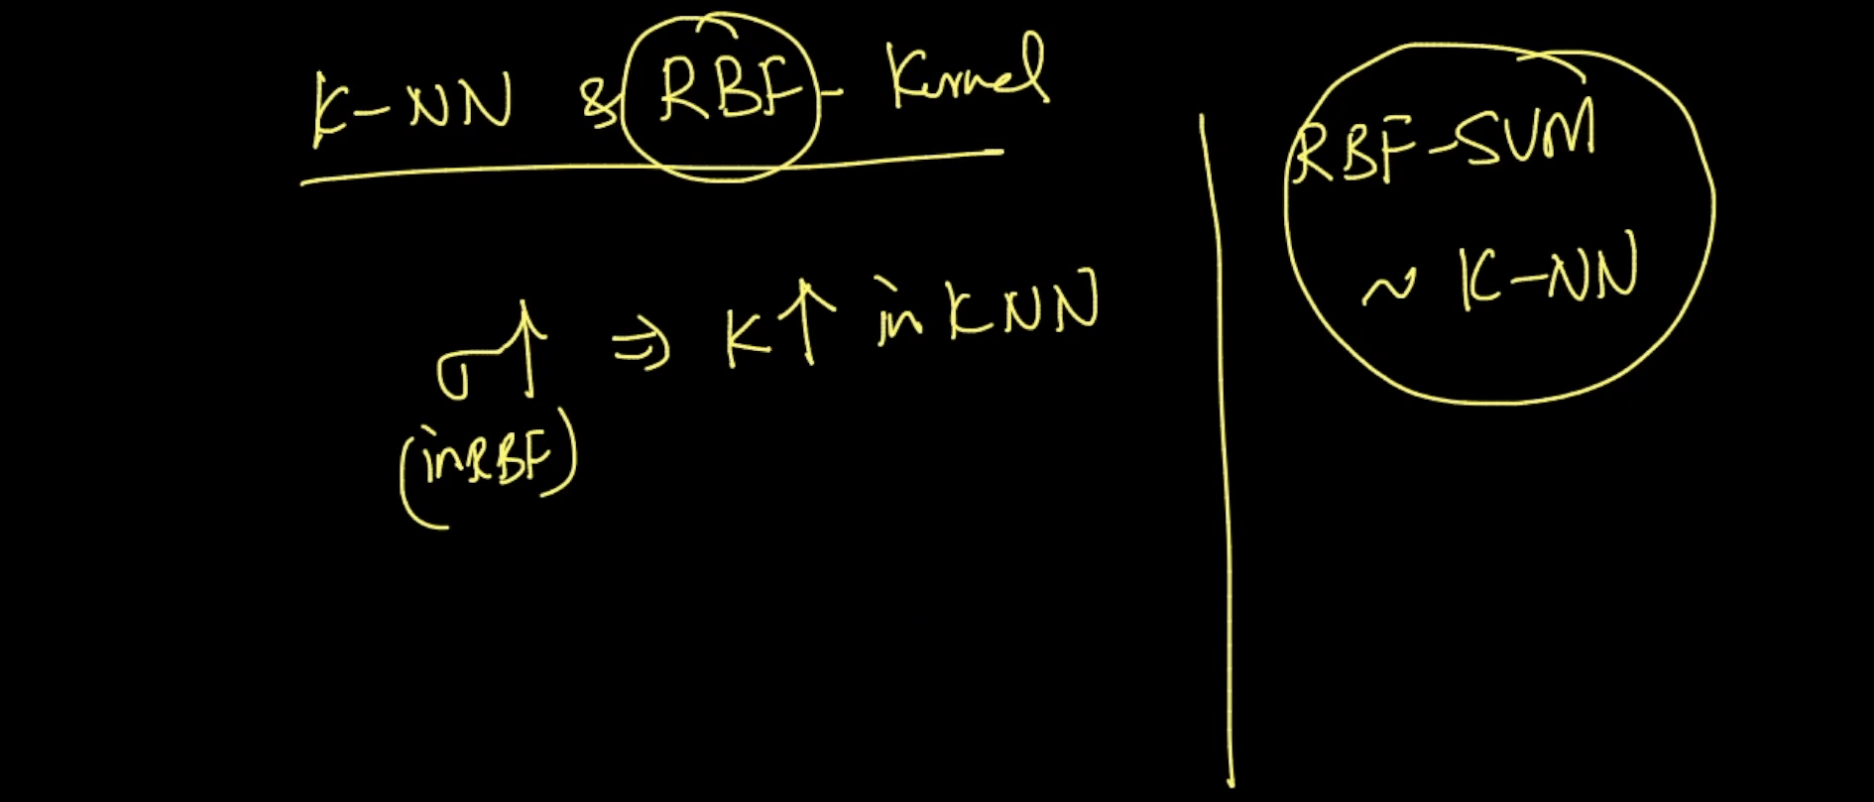 K-NN & RBF - Kernel
σ↑ ⇒ K↑ in KNN
(in RBF)
RBF-SVM
~ K-NN